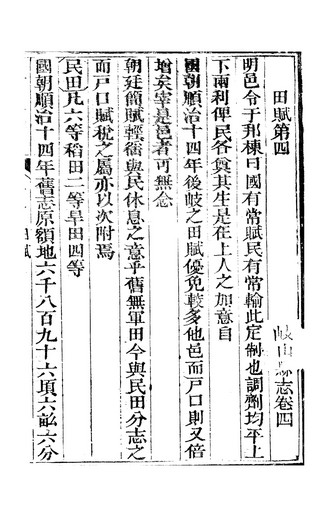 岐山縣志卷四
田賦第四
明邑令于邦棟曰國有常賦民有常輸此定制也調劑均平上
下兩利俾民各奠其生是在上人之加意自
國朝順治十四年後岐之田賦優免較多他邑而戸口則又倍
增矣宰是邑者可無念
朝廷簡賦輕徭與民休息之意乎舊無軍田今與民田分志之
而戸口賦稅之屬亦以次附焉
民田凡六等稻田二等旱田四等
國朝順治十四年舊志原額地六千八百九十六頃六畝六分